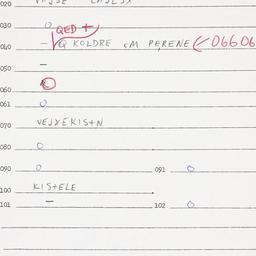 020
030 O QED +
040 – Q KOLDRE cM PERENE 06606
050 –
060
061 O
070 VEJYEKIS+N
080 O
090 O 091 O
100 KIS+ELE
101 – 102 O